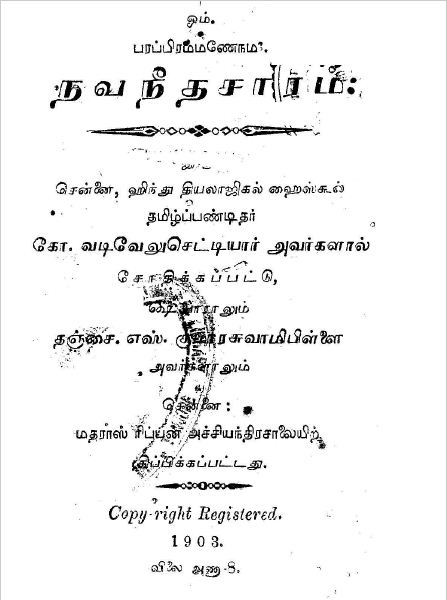 ஓம்.
பரப்பிரம்மணேநம:.
நவநீதசாரம்:
சென்னை, ஹிந்து தியலாஜிகல் ஹைஸ்கூல்
தமிழ்ப்பண்டிதர்
கோ. வடிவேலுசெட்டியார் அவர்களால்
சோதிக்கப்பட்டு,
ஷெயாராலும்
தஞ்சை. எஸ். குமாரசுவாமிபிள்ளை
அவர்களாலும்
சென்னை:
மதராஸ் ரிப்பன் அச்சியந்திரசாலையிற்
பதிப்பிக்கப்பட்டது.
Copy-right Registered.
1903.
விலை அணா-8.